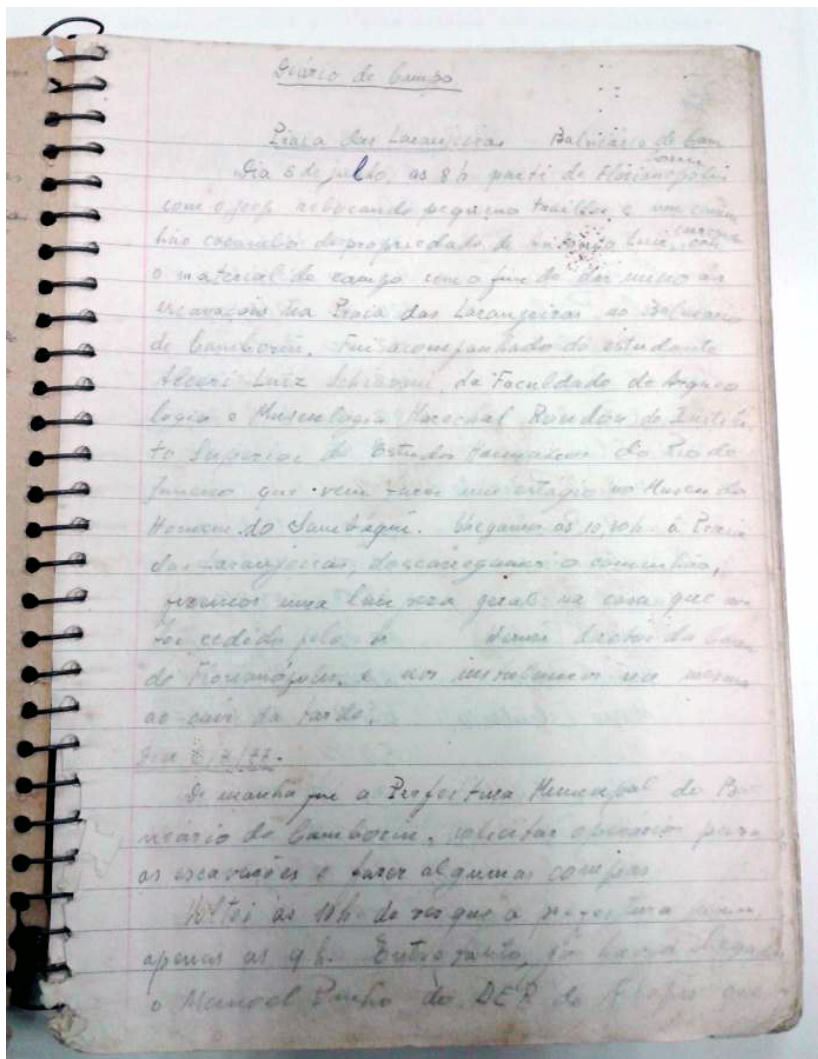 Diário de Campo
Praia das Laranjeiras Balneário de Cam
boriu
Dia 5 de julho, as 8 h parti de Florianópolis
com o jeep rebocando pequeno trailler e um camin
hão caçamba de propriedade de Luiz, com
o material de campo com o fim de dar inicio às
escavações na Praia das Laranjeiras no Balneário
de Camboriu. Fui acompanhado do estudante
Luiz da Faculdade de Arqueo
logia e Museologia Marechal Rondon do Institu
to Superior de Estudos Humanos do Rio de
Janeiro que vem fazer um estágio no Museu do
Homem do Sambaqui. Chegamos às 10,30h à Praia
das Laranjeiras, descarregamos o caminhão,
fizemos uma limpeza geral na casa que nos
foi cedida pelo
de Florianópolis, e nos instalamos na mesma
ao cair da tarde.
Dia 6/7/77.
De manhã fui a Prefeitura Municipal do Bal
neário de Camboriu, solicitar operário para
as escavações e fazer algumas compras
Voltei às 10h de vez que a prefeitura
apenas as 9 h. Entretanto, já havia chegado
o Manoel do DER de que